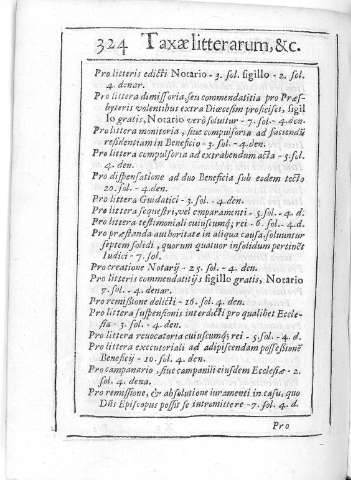 324 Taxæ litterarum, &c.
Pro litteris edicti Notario - 3. sol. sigillo - 2. sol.
4. denar.
Pro littera dimissoria, seu commendatitia pro Præs-
byteris volentibus extra Diœcesim proficisci, sigil
lo gratis, Notario verò soluitur - 7. sol. - 4. den.
Pro littera monitoria, siue compulsoria ad faciendũ
residentiam in Beneficio - 3. sol. - 4. den.
Pro littera compulsoria ad extrahendum acta - 3. sol.
4. den.
Pro dispensatione ad duo Beneficia sub eodem tecto
20. sol. - 4. den.
Pro littera Guidatici - 3. sol. - 4. den.
Pro littera sequestri, vel emparamenti - 5. sol. - 4. d.
Pro littera testimoniali cuiuscumq; rei - 6. sol. - 4. d.
Pro præstanda authoritate in aliqua causa, soluuntur
septem solidi, quorum quatuor in solidum pertinẽt
Iudici - 7. sol.
Pro creatione Notarij - 25. sol. - 4. den.
Pro litteris commendatitijs sigillo gratis, Notario
7. sol. - 4. denar.
Pro remissione delicti - 16. sol. 4. den.
Pro littera suspensionis interdicti pro qualibet Eccle-
sia - 3. sol. - 4. den.
Pro littera reuocatoria cuiuscumq; rei - 5. sol. - 4. d.
Pro littera executoriali ad adipiscendam possessionẽ
Beneficij - 10. sol. 4. den.
Pro campanario, siue campanili eiusdem Ecclesiæ - 2.
sol. 4. dena.
Pro remissione, & absolutione iuramenti in casu, quo
Dñs Episcopus possit se intromittere - 7. sol. 4. d.
Pro